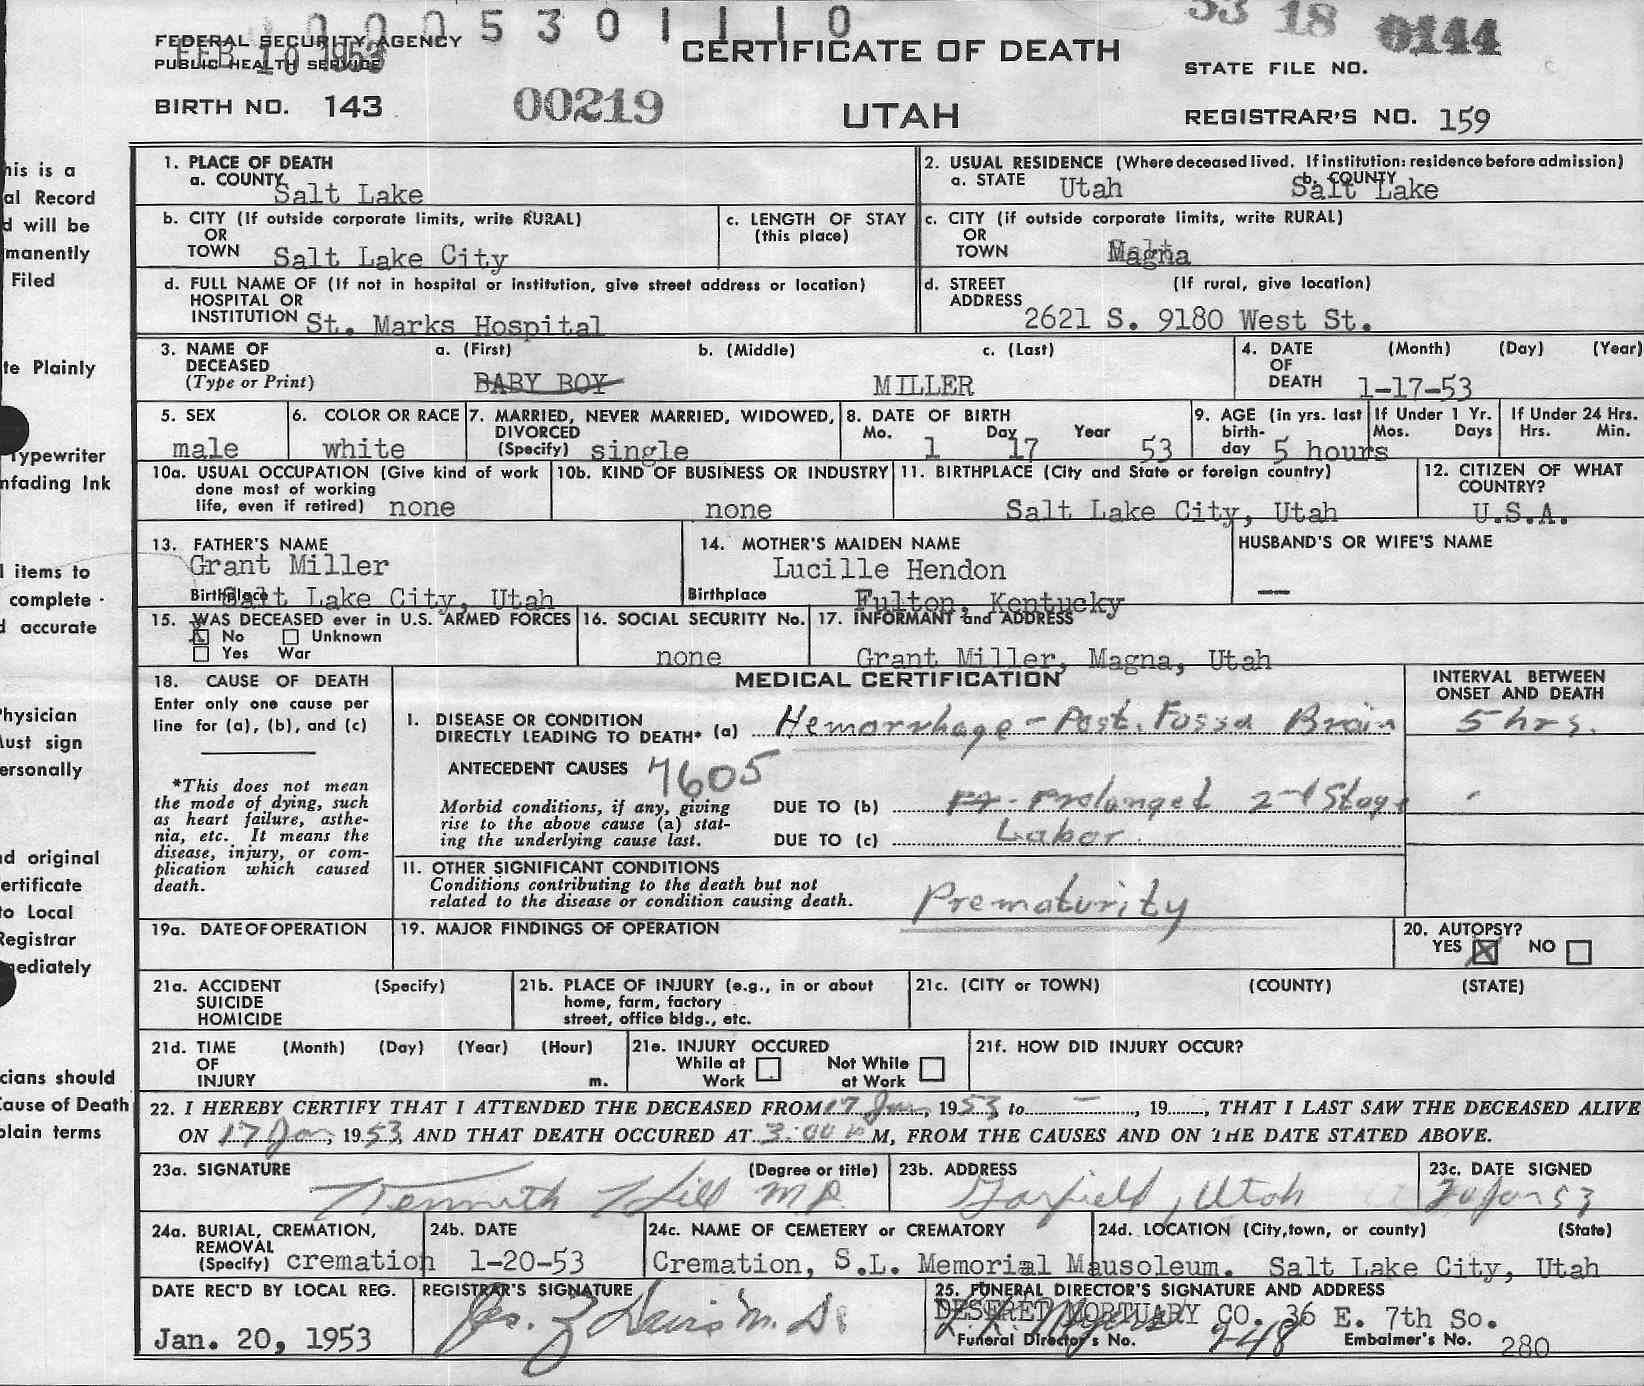 0 0 0 5 3 0 1 1 1 0
53 18 0144
FEDERAL SECURITY AGENCY
PUBLIC HEALTH SERVICE
FEB 10 1953
CERTIFICATE OF DEATH
STATE FILE NO.
BIRTH NO. 143
00219
UTAH
REGISTRAR'S NO. 159
1. PLACE OF DEATH
a. COUNTY Salt Lake
2. USUAL RESIDENCE (Where deceased lived. If institution: residence before admission)
a. STATE Utah b. COUNTY Salt Lake
b. CITY (If outside corporate limits, write RURAL)
OR
TOWN Salt Lake City
c. LENGTH OF STAY
(this place)
c. CITY (if outside corporate limits, write RURAL)
OR
TOWN Magna
d. FULL NAME OF (If not in hospital or institution, give street address or location)
HOSPITAL OR
INSTITUTION St. Marks Hospital
d. STREET (If rural, give location)
ADDRESS 2621 S. 9180 West St.
3. NAME OF DECEASED
(Type or Print)
a. (First) b. (Middle) c. (Last)
BABY BOY MILLER
4. DATE OF DEATH (Month) (Day) (Year)
1-17-53
5. SEX
male
6. COLOR OR RACE
white
7. MARRIED, NEVER MARRIED, WIDOWED,
DIVORCED
(Specify) single
8. DATE OF BIRTH
Mo. Day Year
1 17 53
9. AGE (in yrs. last
birth-
day 5 hours
If Under 1 Yr.
Mos. Days
If Under 24 Hrs.
Hrs. Min.
10a. USUAL OCCUPATION (Give kind of work
done most of working
life, even if retired) none
10b. KIND OF BUSINESS OR INDUSTRY
none
11. BIRTHPLACE (City and State or foreign country)
Salt Lake City, Utah
12. CITIZEN OF WHAT
COUNTRY?
U.S.A.
13. FATHER'S NAME
Grant Miller
Birthplace Salt Lake City, Utah
14. MOTHER'S MAIDEN NAME
Lucille Hendon
Birthplace Fulton, Kentucky
HUSBAND'S OR WIFE'S NAME
—
15. WAS DECEASED ever in U.S. ARMED FORCES
X No Unknown
Yes War
16. SOCIAL SECURITY No.
none
17. INFORMANT and ADDRESS
Grant Miller, Magna, Utah
18. CAUSE OF DEATH
Enter only one cause per
line for (a), (b), and (c)
*This does not mean
the mode of dying, such
as heart failure, asthe-
nia, etc. It means the
disease, injury, or com-
plication which caused
death.
MEDICAL CERTIFICATION
INTERVAL BETWEEN
ONSET AND DEATH
I. DISEASE OR CONDITION
DIRECTLY LEADING TO DEATH* (a) Hemorrhage - Post. Fossa Brain 5 hrs.
ANTECEDENT CAUSES 7605
Morbid conditions, if any, giving
rise to the above cause (a) stat-
ing the underlying cause last.
DUE TO (b) Prolonged 2nd Stage
DUE TO (c) Labor.
II. OTHER SIGNIFICANT CONDITIONS
Conditions contributing to the death but not
related to the disease or condition causing death.
Prematurity
19a. DATE OF OPERATION
19. MAJOR FINDINGS OF OPERATION
20. AUTOPSY?
YES X NO
21a. ACCIDENT (Specify)
SUICIDE
HOMICIDE
21b. PLACE OF INJURY (e.g., in or about
home, farm, factory
street, office bldg., etc.
21c. (CITY or TOWN) (COUNTY) (STATE)
21d. TIME (Month) (Day) (Year) (Hour)
OF
INJURY m.
21e. INJURY OCCURED
While at Work Not While at Work
21f. HOW DID INJURY OCCUR?
22. I HEREBY CERTIFY THAT I ATTENDED THE DECEASED FROM 17 Jan, 1953 to –, 19, THAT I LAST SAW THE DECEASED ALIVE
ON 17 Jan, 1953, AND THAT DEATH OCCURED AT 3:00 M, FROM THE CAUSES AND ON THE DATE STATED ABOVE.
23a. SIGNATURE (Degree or title)
Kenneth Hill M.D.
23b. ADDRESS
Garfield, Utah
23c. DATE SIGNED
20 Jan 53
24a. BURIAL, CREMATION,
REMOVAL
(Specify) cremation
24b. DATE
1-20-53
24c. NAME OF CEMETERY or CREMATORY
Cremation, S.L. Memorial Mausoleum.
24d. LOCATION (City, town, or county) (State)
Salt Lake City, Utah
DATE REC'D BY LOCAL REG.
Jan. 20, 1953
REGISTRAR'S SIGNATURE
25. FUNERAL DIRECTOR'S SIGNATURE AND ADDRESS
DESERET MORTUARY CO. 36 E. 7th So.
Funeral Director's No. 248 Embalmer's No. 280
his is a
al Record
d will be
manently
Filed
te Plainly
Typewriter
nfading Ink
l items to
complete
d accurate
Physician
Must sign
ersonally
nd original
ertificate
to Local
Registrar
mediately
cians should
Cause of Death
plain terms